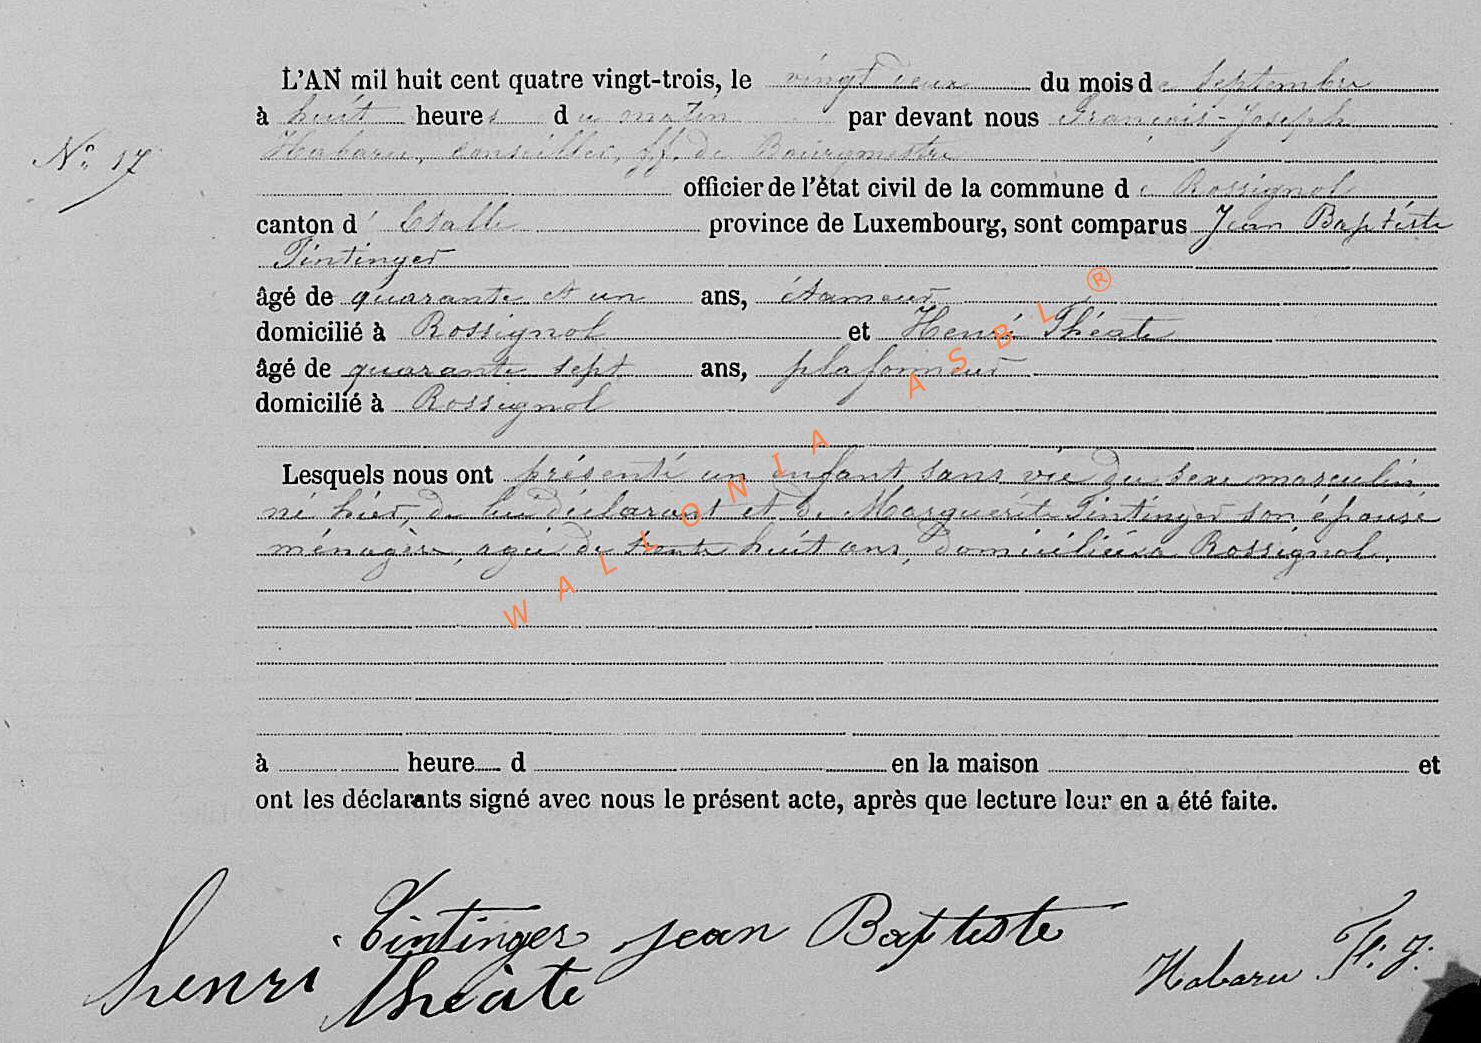 L'AN mil huit cent quatre vingt-trois, le vingt deux du mois de Septembre
à huit heures du matin par devant nous François-Joseph
N° 17
Habaru, Conseiller, ff. de Bourgmestre
officier de l'état civil de la commune de Rossignol
canton d'Etalle province de Luxembourg, sont comparus Jean Baptiste
Tintinger
âgé de quarante et un ans, étameur
domicilié à Rossignol et Henri Théate
âgé de quarante sept ans, plafonneur
domicilié à Rossignol
Lesquels nous ont présenté un enfant sans vie du sexe masculin
né hier, de lui déclarant et de Marguerite Tintinger son épouse
ménagère, agée de trente huit ans, domiciliée à Rossignol.
à heure d en la maison et
ont les déclarants signé avec nous le présent acte, après que lecture leur en a été faite.
Tintinger jean Baptiste
henri théate
Habaru F. J.
WALLONIA ASBL ®